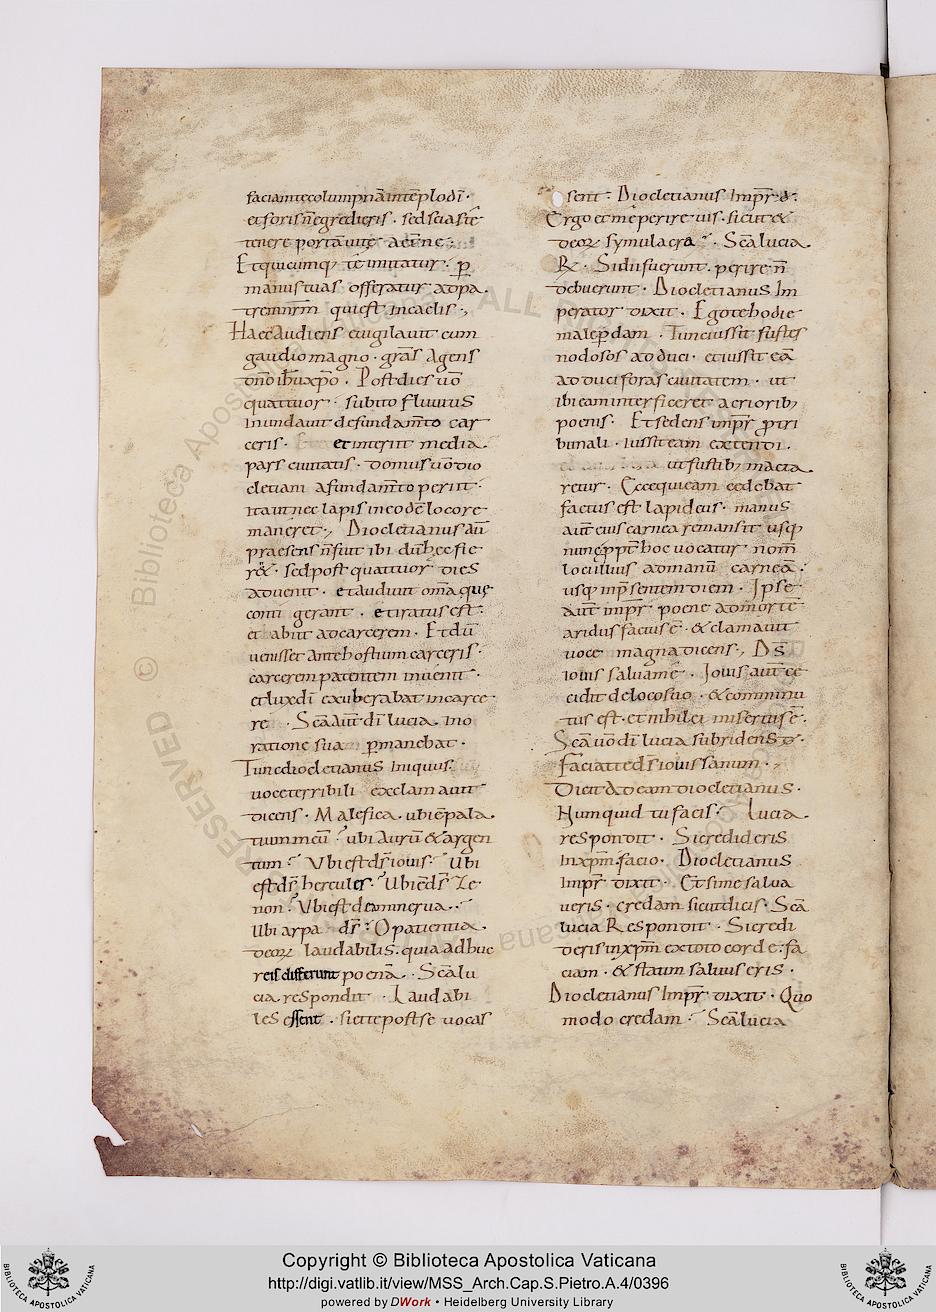 faciam te colu͞pnā inte͞plo dī ·
et foris n̄ egredieris · sed scias te
tenere portā uitę aet̄ne ·,
Et quicumq; te imitatur · p̱
manus tuas offeratur ad pa
trem nr̄m qui est in caelis ·,
Haec audiens euigilauit cum
gaudio magno · gr̄as agens
dn̄o ih̄u xp̄o · Post dies uō
quattuor · subito fluuius
inundauit de fundam̄to car
ceris · et interiit media
pars ciuitatis · domus uō dio
cletiani a fundam̄to periit ·
ita ut nec lapis in eodē loco re
maneret ·, Diocletianus aū
praesens n̄ fuit ibi dū hęc fie
r& · sed post quattuor dies
aduenit · et audiuit om̄a quę
conti gerant · et iratus est ·
et abiit ad carcerem · Et dū
uenisset ante hostium carceris ·
carcerem patentem inuenit ·
et lux dī exuberabat in carce
re · Sc̄a aut̄ dī lucia · in o
ratione sua p̱manebat ·
Tunc diocletianus iniquus
uoce terribili exclamauit
dicens · Malefica · ubi ē pala
tium meū ? ubi aurū & argen
tum ? Vbi est ds̄ iouis ? Vbi
est ds̄ hercules ? Vbi ē ds̄ Ze
non ? Vbi est dea minerua ·
Vbi arpa ds̄ ? O patientia
deorꝝ laudabilis · quia adhuc
reis differunt poenā · Sc̄a lu
cia respondit · Laudabi
les essent · si et te post se uocas
sent · Diocletianus Imp̄r d̄ ·
Ergo et me perire uis · sicut &
deorꝝ symulacra ? Sc̄a lucia
Ṟ · Si dii fuerunt · perire n̄
debuerunt · Diocletianus Im
perator dixit · Ego te hodie
male p̱dam · Tunc iussit fustes
nodosos adduci · et iussit eā
adduci foras ciuitatem · ut
ibi eam interficeret acriorib;
poenis · Et sedens imp̄r p̱ tri
bunali · iussit eam extendi ·
ut fustib; macta
retur · Ecce qui eam cedebat
factus est lapideus · manus
aut̄ eius carnea remansit usq;
nunc · p̱pt̄ hoc uocatur nom̄
loci illius ad manū carneā ·
usq; in p̄sentem diem · Ipse
aut̄ imp̄r poene ad mortē
aridus factus ē · & clamauit
uoce magna dicens ·, Ds̄
iouis salua mē · Iouis aut̄ ce
cidit de loco suo · & comminu
tus est · et nihil ei misertus ē ·
Sc̄a uō dī lucia subridens d̄ ·
Faciat te ds̄ iouis sanum ·,
Dicit ad eam diocletianus ·
Numquid tu facis ? Lucia
respondit · Si credideris
in xp̄m · facio · Diocletianus
Imp̄r dixit · Et si me salua
ueris · credam sicut dicis · Sc̄a
lucia Respondit · Si credi
deris in xp̄m ex toto corde : fa
ciam · & statim saluus eris ·
Diocletianus Imp̄r dixit · Quo
modo credam ? Sc̄a lucia
Copyright © Biblioteca Apostolica Vaticana
http://digi.vatlib.it/view/MSS_Arch.Cap.S.Pietro.A.4/0396
powered by DWork • Heidelberg University Library